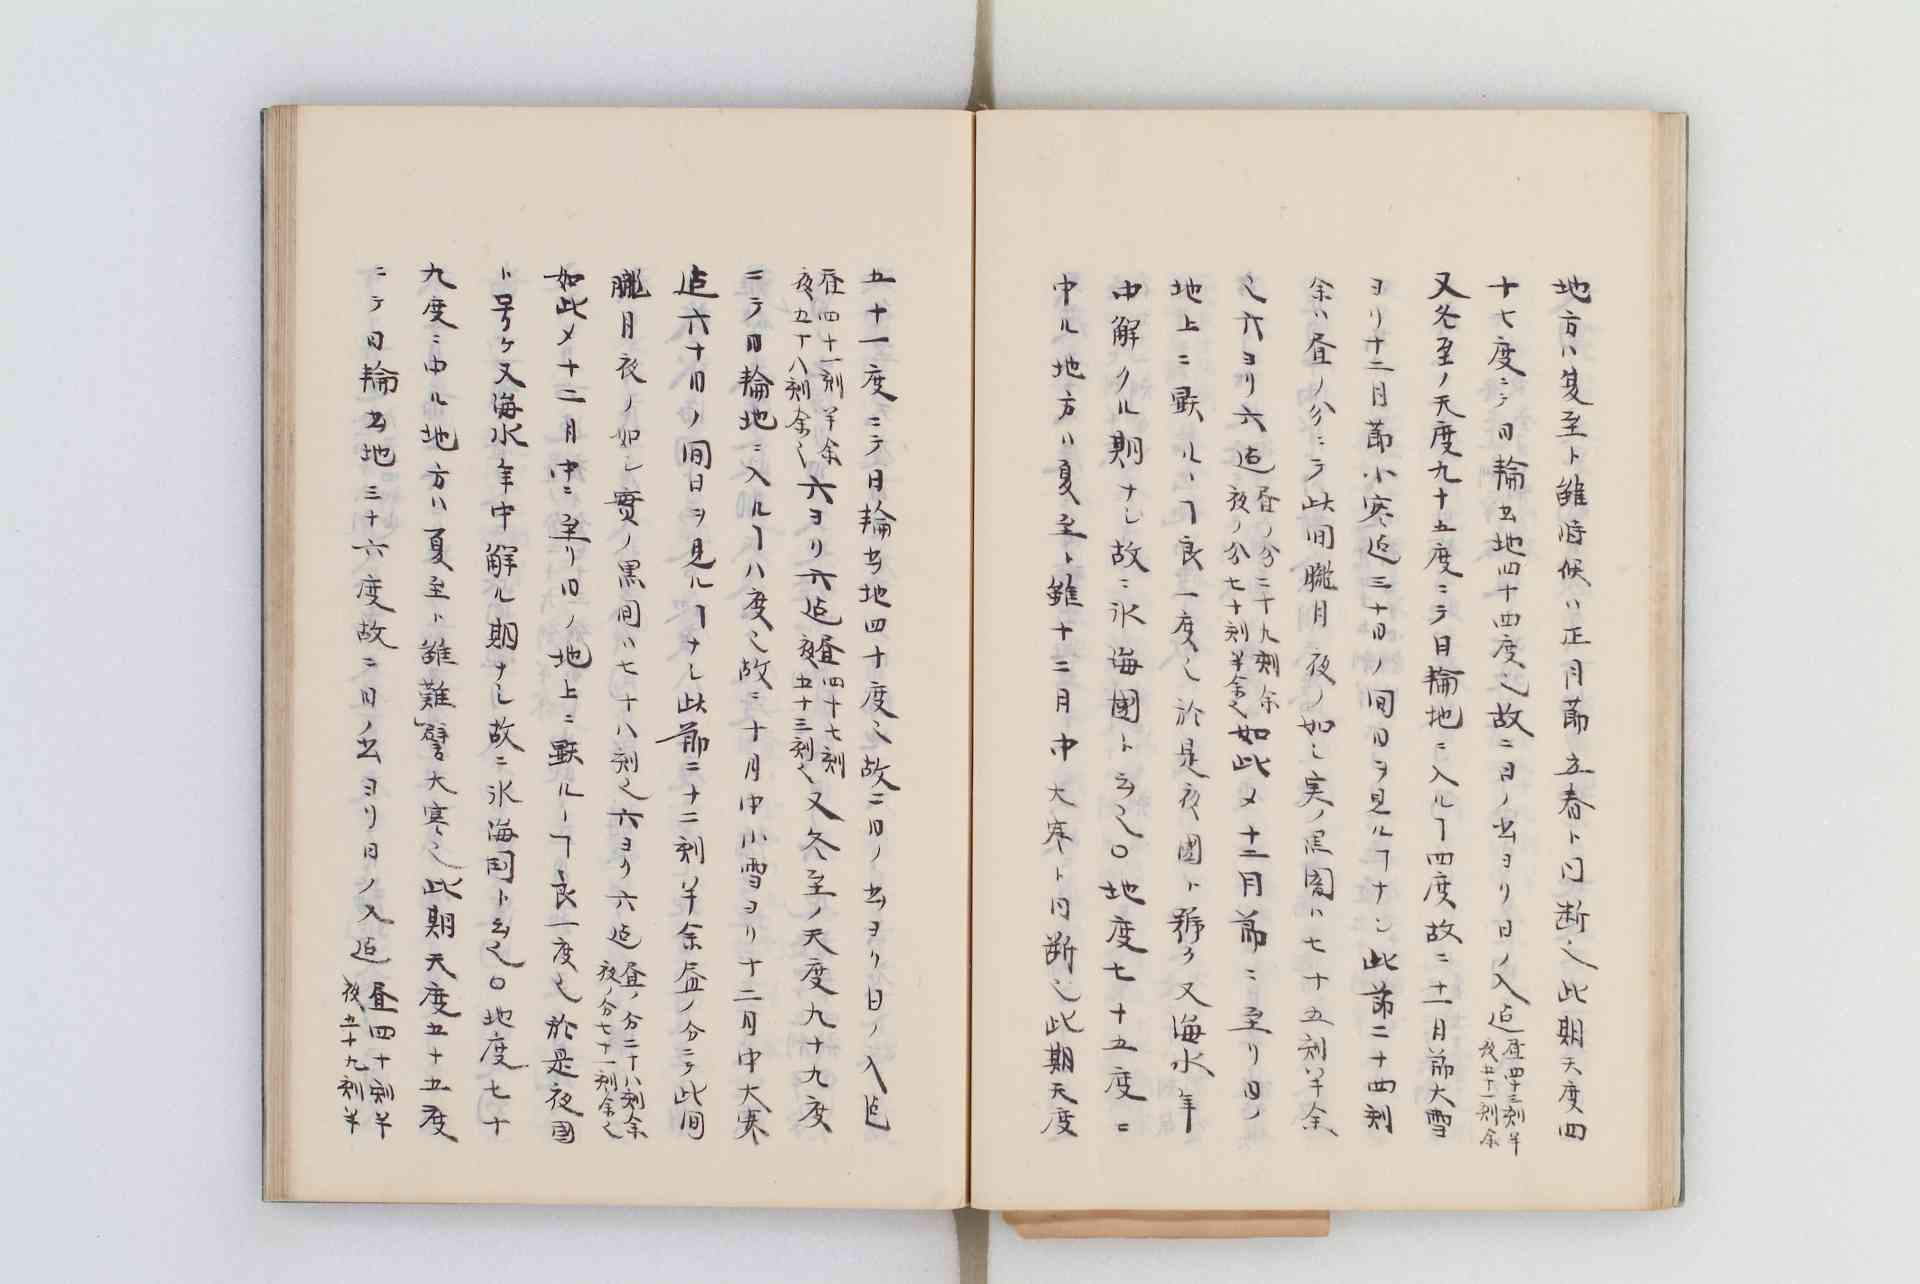 地方ハ夏至ト雖時候ハ正月節立春ト同断也此期天度四
十七度ニテ日輪出地四十四度也故ニ日ノ出ヨリ日ノ入迄昼四十三刻半夜五十一刻余
又冬至ノ天度九十五度ニテ日輪地ニ入ルヿ四度故ニ十一月節大雪
ヨリ十二月節小寒迄三十日ノ間日ヲ見ルヿナシ此節二十四刻
余ハ昼ノ分ニテ此間朧月夜ノ如シ実ノ黒闇ハ七十五刻半余
也六ヨリ六迄昼ノ分二十九刻余夜ノ分七十刻半余也如此〆十二月節ニ至リ日ノ
地上ニ顕ルヽヿ良一度也於是夜國ト號ク又海水年
中解クル期ナシ故ニ氷海國ト云也〇地度七十五度ニ
中ル地方ハ夏至ト雖十二月中大寒ト同断也此期天度
五十一度ニテ日輪出地四十度也故ニ日ノ出ヨリ日ノ入迄
昼四十一刻半余夜五十八刻余也六ヨリ六迄昼四十七刻夜五十三刻也又冬至ノ天度九十九度
ニテ日輪地ニ入ルヿ八度也故ニ十月中小雪ヨリ十二月中大寒
迄六十日ノ間日ヲ見ルヿナシ此節二十二刻半余昼ノ分ニテ此間
朧月夜ノ如シ實ノ黒間ハ七十八刻也六ヨリ六迄昼ノ分二十八刻余夜ノ分七十一刻余也
如此〆十二月中ニ至リ日ノ地上ニ顕ルヽヿ良一度也於是夜國
ト号ケ又海水年中解ル期ナシ故ニ氷海国ト云也〇地度七十
九度ニ中ル地方ハ夏至ト雖難譬大寒也此期天度五十五度
ニテ日輪出地三十六度故ニ日ノ出ヨリ日ノ入迄昼四十刻半夜五十九刻半